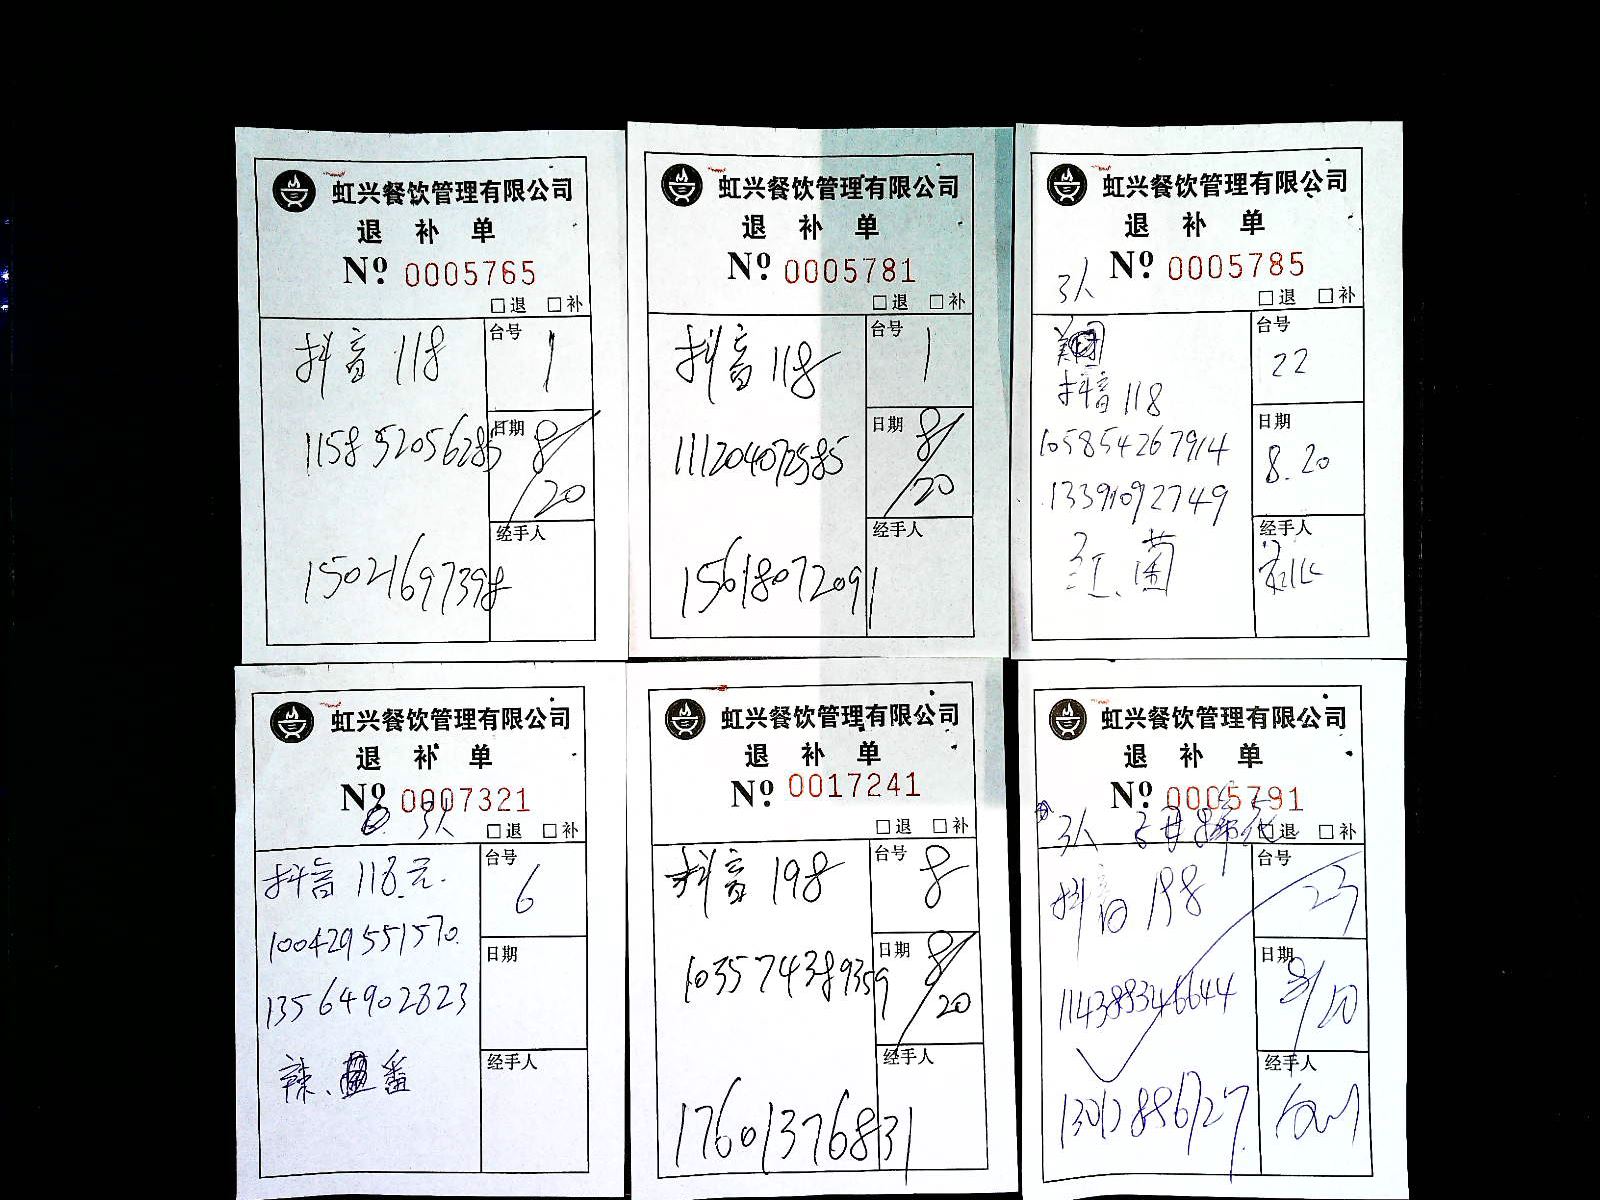 虹兴餐饮管理有限公司
退 补 单
Nº 0005765
□退 □补
抖音 118
台号
1
115852056285
日期
8/20
经手人
15021697398
虹兴餐饮管理有限公司
退 补 单
Nº 0005781
□退 □补
抖音 118
台号
1
111204072585
日期
8/20
经手人
15618072091
虹兴餐饮管理有限公司
退 补 单
Nº 0005785
3人
□退 □补
台号
22
抖音 118
105854267914
日期
8.20
13391092749
经手人
红、菌
虹兴餐饮管理有限公司
退 补 单
Nº 0007321
3人
□退 □补
抖音 118元.
台号
6
100429551570.
日期
13564902823
经手人
辣、番
虹兴餐饮管理有限公司
退 补 单
Nº 0017241
□退 □补
抖音 198
台号
8
103574389359
日期
8/20
经手人
17601376831
虹兴餐饮管理有限公司
退 补 单
Nº 0005791
3人
□退 □补
抖音 198
台号
23
114388346644
日期
8/20
经手人